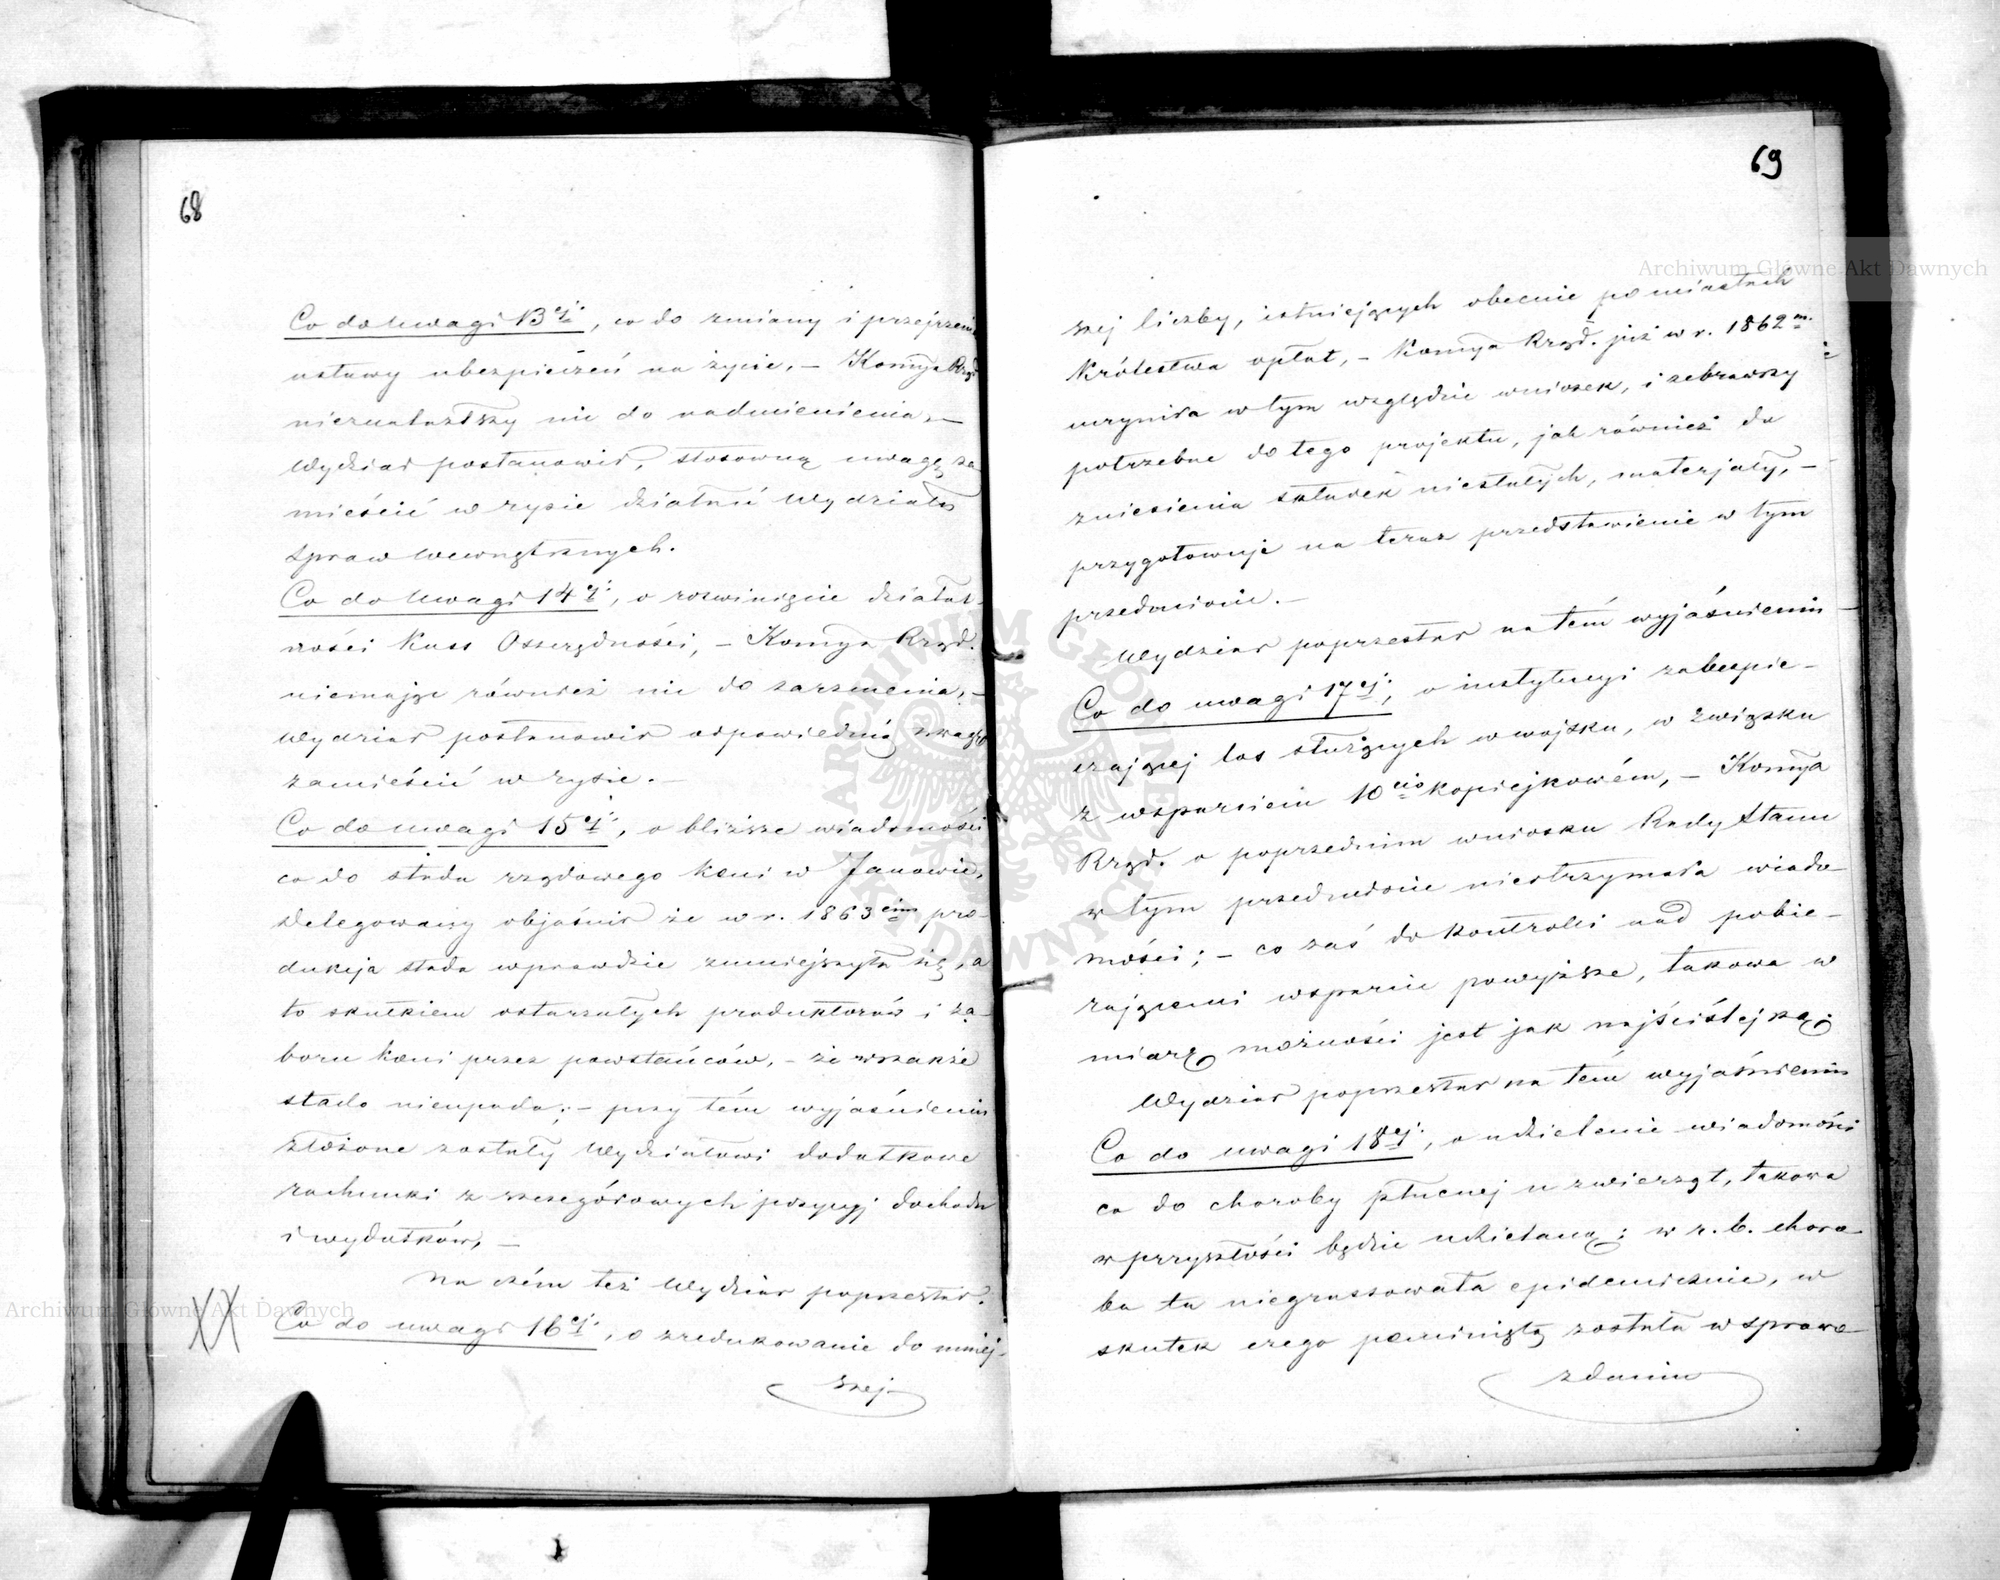 68
Co do Uwagi 13ej, co do zmiany i przejrzenia
ustawy ubezpieczeń na życie, – Kommya Rząd.
nieznalazłszy nic do nadmienienia, –
Wydział postanowił, stosowną uwagę za-
mieścić w rysie działań Wydziału
Spraw Wewnętrznych.
Co do Uwagi 14ej, o rozwinięcie działal-
ności Kass Oszczędności, – Kommya Rząd.
niemając również nic do zarzucenia, –
Wydział postanowił odpowiednią uwagę
zamieścić w rysie. –
Co do uwagi 15ej, o bliższe wiadomości
co do stada rządowego koni w Janowie,
Delegowany objaśnił że w r. 1863cim pro-
dukcja stada wprawdzie zmniejszyła się, a
to skutkiem ostarzałych produktorów i za-
boru koni przez powstańców, – że wszakże
stado nieupada; – przy tém wyjaśnieniu
złożone zostały Wydziałowi dodatkowe
rachunki z szczegółowych pozycyj dochodu
i wydatków, –
Na czém też Wydział poprzestał.
XX
Co do uwagi 16ej, o zredukowanie do mniej-
szej
69
szej liczby, istniejących obecnie po miastach
Królestwa opłat, – Kommya Rząd. już w r. 1862m.
uczyniła w tym względzie wniosek, i zebrawszy
potrzebne do tego projektu, jak również do
zniesienia składek niestałych, materjały, –
przygotowuje na teraz przedstawienie w tym
przedmiocie. –
Wydział poprzestał na tém wyjaśnieniu –
Co do uwagi 17ej, o instytucyi zabezpie-
czającej los służących w wojsku, w związku
z wsparciem 10cio kopiejkowém, – Kommya
Rząd. o poprzednim wniosku Rady Stanu
w tym przedmiocie nieotrzymała wiado-
mości; – co zaś do kontroli nad pobie-
rającemi wsparcie powyższe, takowa w
miarę możności jest jak najściślejszą.
Wydział poprzestał na tém wyjaśnieniu
Co do uwagi 18ej, o udzielenie wiadomości
co do choroby płucnej u zwierząt, takowa
w przyszłości będzie udzielaną; w r. b. choro-
ba ta niegrassowała epidemicznie, w
skutek czego pominiętą została w sprawo-
zdaniu
Archiwum Główne Akt Dawnych
Archiwum Główne Akt Dawnych
ARCHIWUM GŁÓWNE AKT DAWNYCH